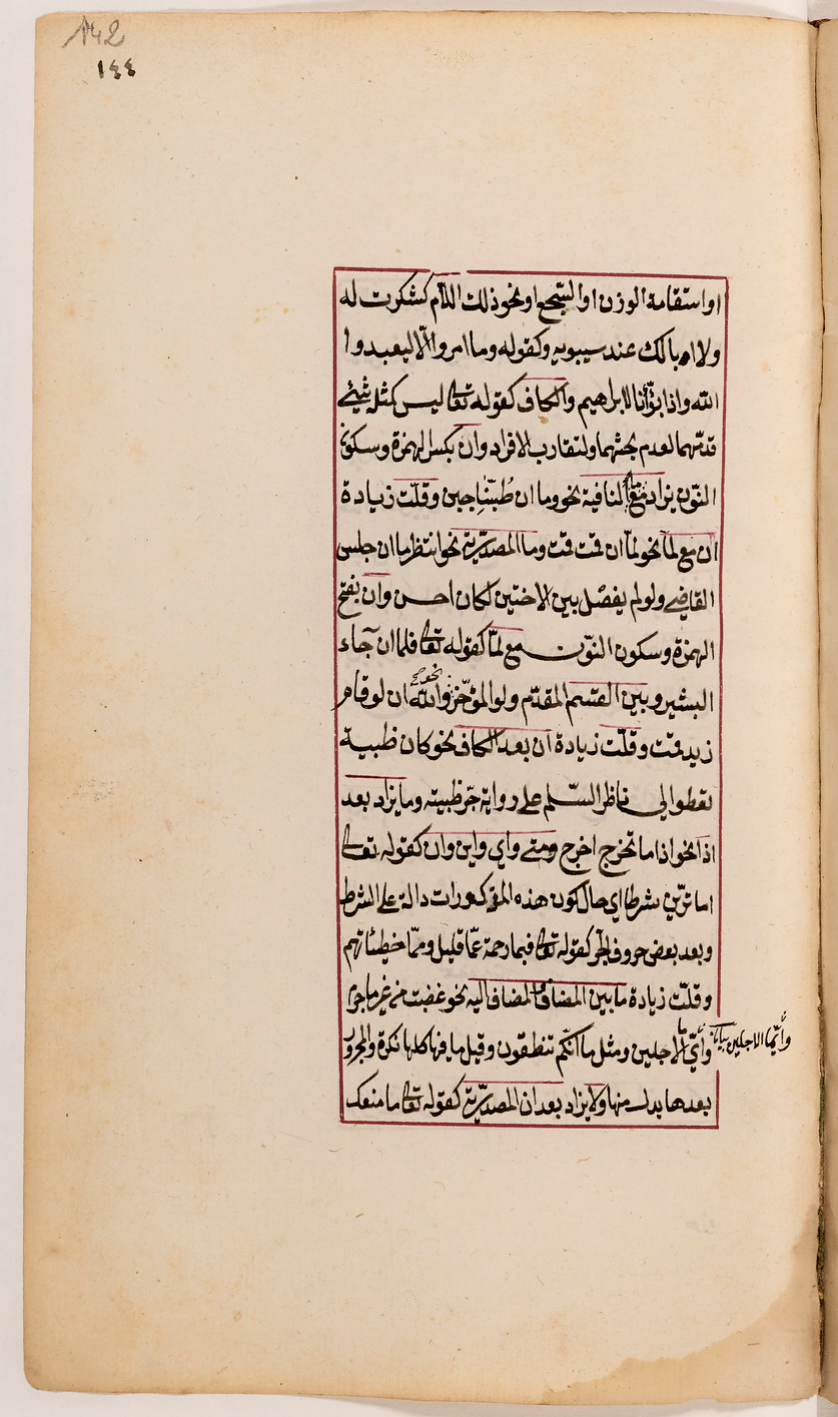 142
١٤٤
او استقامة الوزن او السّجع او نحو ذلك اللّام كشكرت له
ولا ابا لك عند سيبويه وكقوله وما امروا الّا ليعبدوا
الله واذ بوّأنا لابراهيم والكاف كقوله تعالى ليس كمثله شئ
قدّمهما لعدم بحثهما ولتقارب الافراد وان بكسر الهمزة وسكون
النّون يزاد مع ما النافية نحو وما ان طبّنا جبن وقلّت زيادة
ان مع لمّا نحو لمّا ان قمت قمت وما المصدريّة نحو انتظر ما ان جلس
القاضي ولو لم يفصّل بين الاختين لكان احسن وان بفتح
الهمزة وسكون النّون مع لمّا كقوله تعالى فلما ان جاء
البشير وبين القسم المقدّم ولو المؤخّر نحو والله ان لو قام
زيد قمت وقلّت زيادة ان بعد الكاف نحو كان ظبية
تعطو الى ناظر السّلم على رواية جرّ ظبية وما يزاد بعد
اذا نحو اذا ما تخرج اخرج ومتى واي واين وان كقوله تعالى
اما ترينّ شرطا اي حال كون هذه المذكورات دالة على الشرط
وبعد بعض حروف الجرّ كقوله تعالى فبما رحمة عمّا قليل وممّا خطيئاتهم
وقلّت زيادة ما بين المضاف والمضاف اليه نحو غضبت من غير ما جرم
وأيّ ما الاجلين ومثل ما انّكم تنطقون وقيل ما فيها كلها نكرة والمجرور
وأيّما الاجلين
بعدها بدل منها ولا يزاد بعد ان المصدريّة كقوله تعالى ما منعك